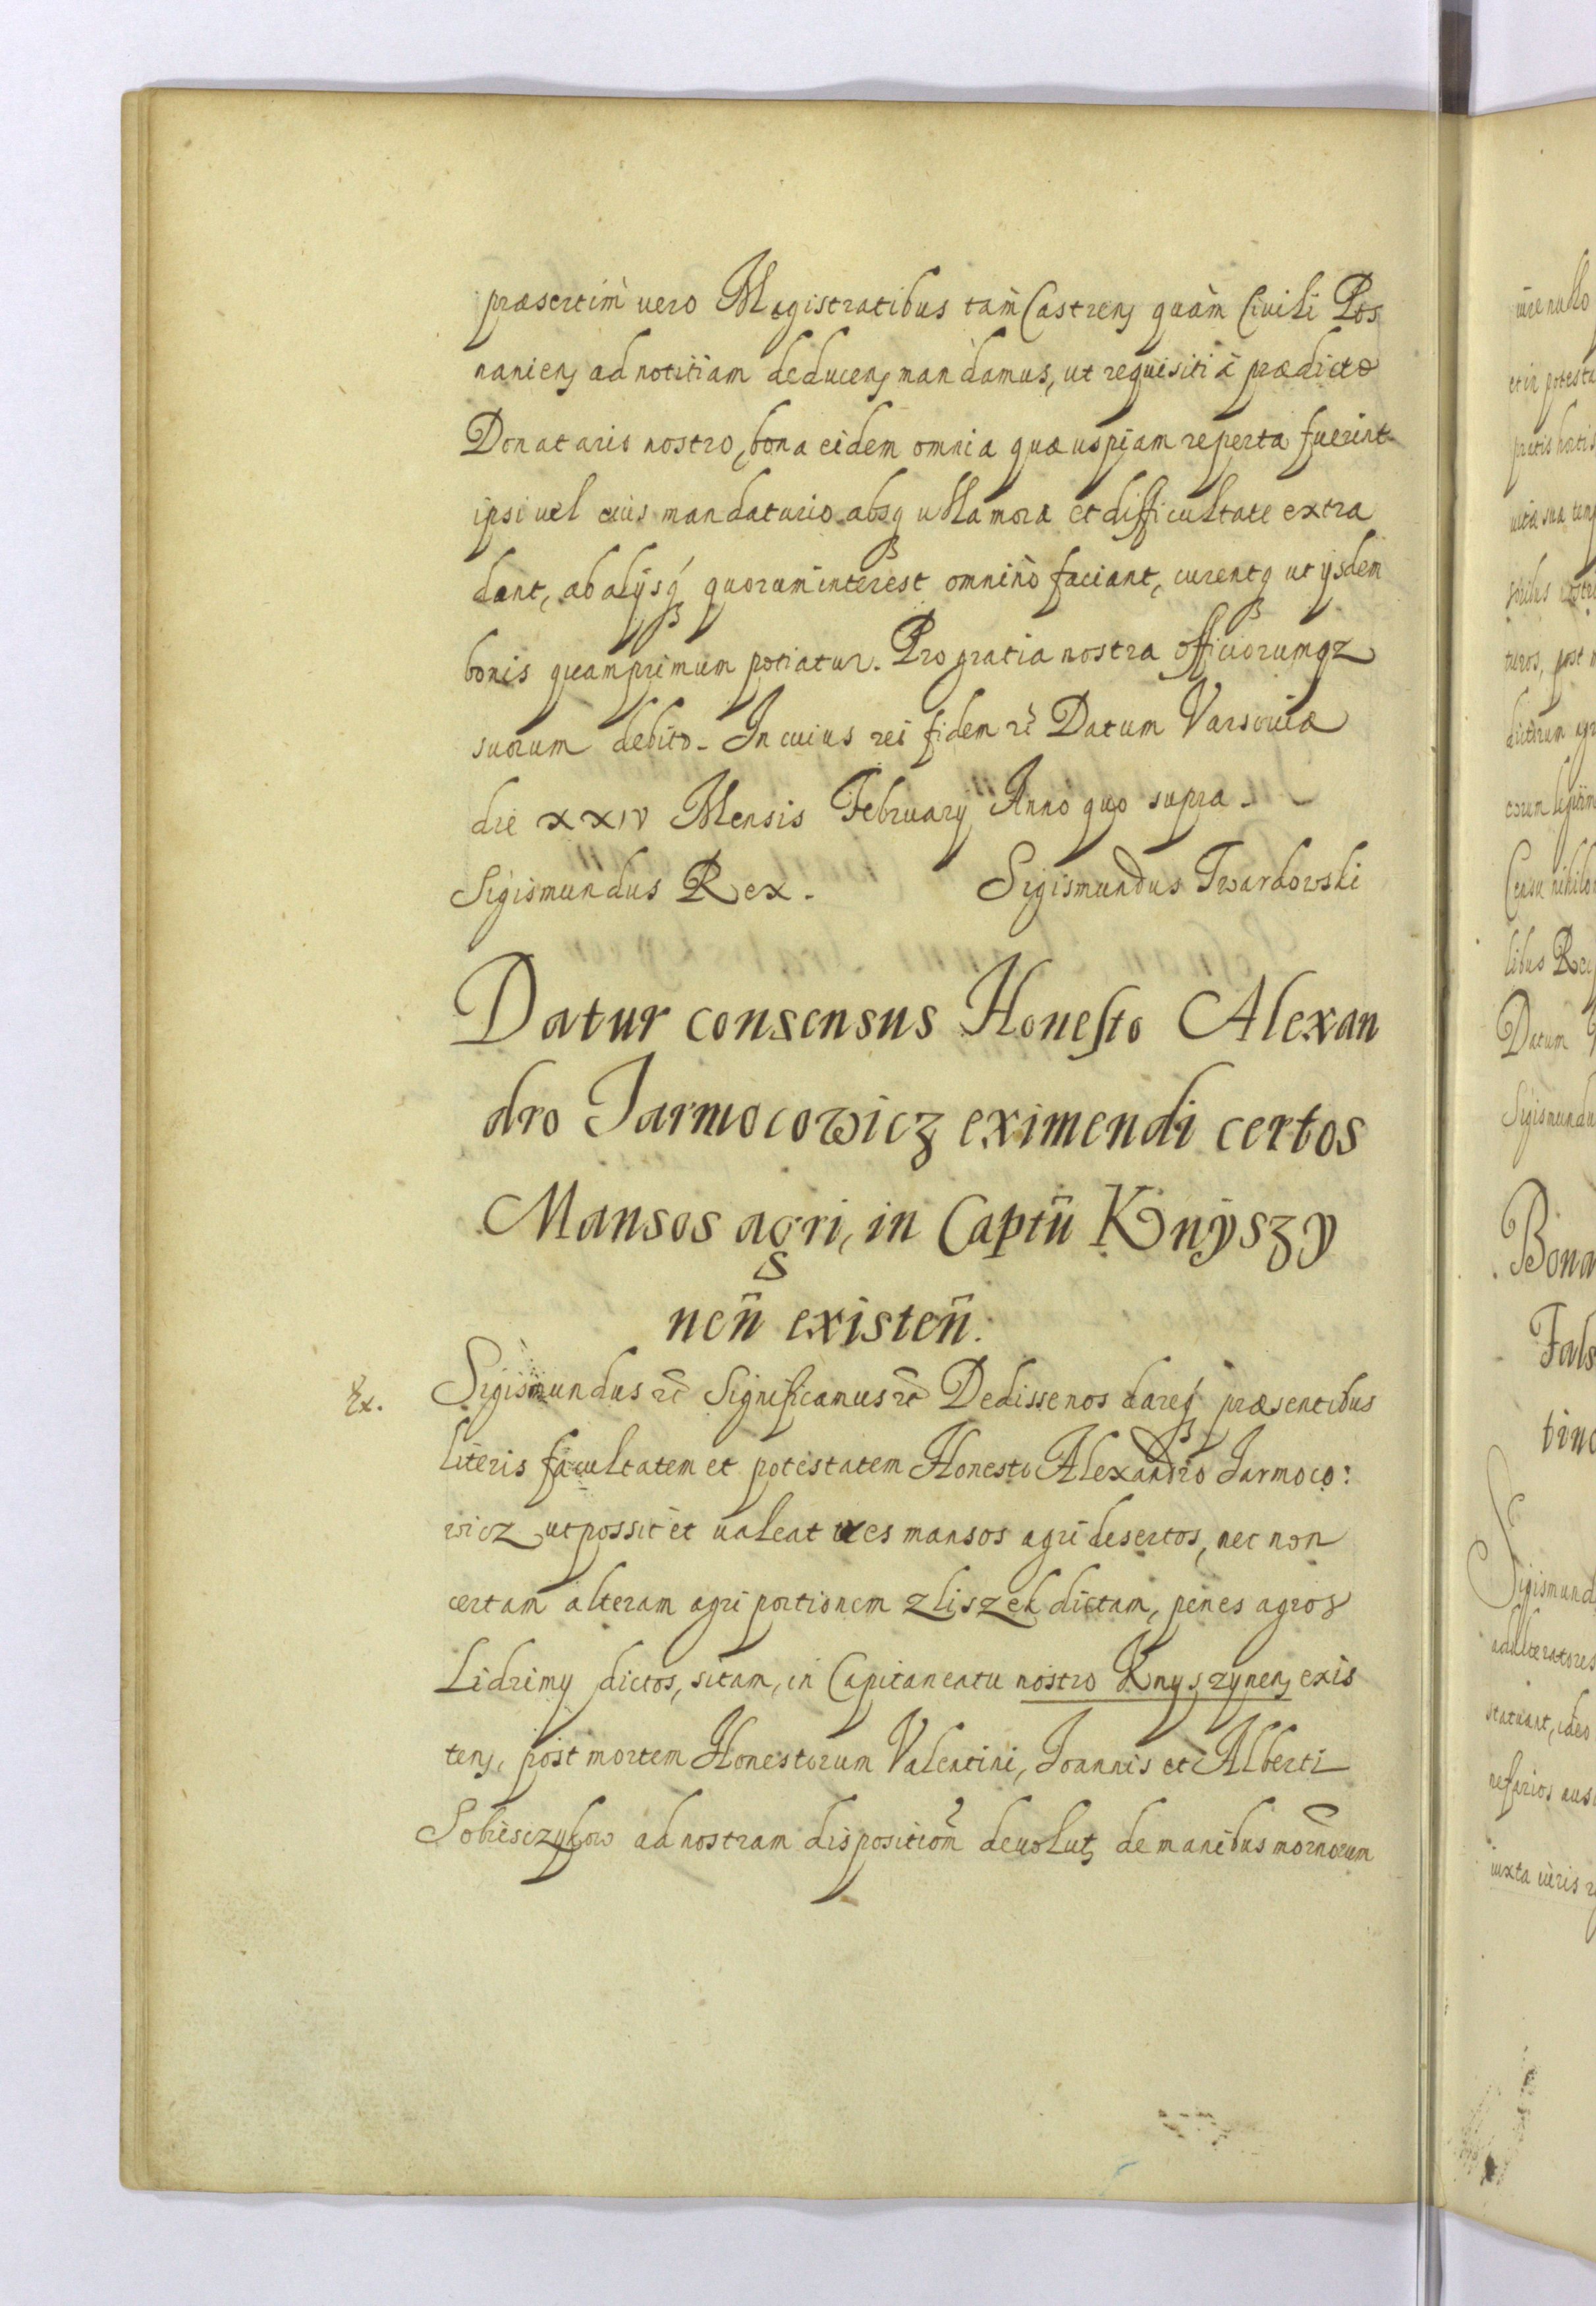 præsertim vero Magistratibus tam Castren, quàm Civili Pos
nanien, ad notitiam deducen, mandamus, ut requisiti à prædicto
Donatario nostro, bona eidem omnia quæ uspiam reperta fuerint
ipsi vel eius mandatario absq ulla mora et difficultate extra
dant, ab alijsq quorum interest omnino faciant, curentq ut ijsdem
bonis quamprimum potiatur. Pro gratia nostra officiorumqz
suorum debito. In cuius rei fidem rc Datum Varsoviæ
die XXIV Mensis February Anno quo supra.
Sigismundus Rex. Sigismundus Twardowski
Datur consensus Honesto Alexan
dro Jarmocowicz eximendi certos
Mansos agri, in Captũ Knÿszy
nen̄ existen̄.
Ex. Sigismundus rc Significamus rc Dedisse nos dareq præsentibus
literis facultatem et potestatem Honesto Alexandro Jarmoco:
wicz ut possit et valeat tres mansos agri desertos, nec non
certam alteram agri portionem Zliszek dictam, penes agros
Lidzimy dictos, sitam, in Capitaneatu nostro Knyszynen, exis
ten, post mortem Honestorum Valentini, Joannis et Alberti
Sobiesczykow ad nostram disposition̄m devolut, de manibus modernorum
iure nullo
et in potesta
pratis hortis
vitæ suæ temp
turos, post m
Datum
Sigismundus
Bona
Fals
tino
Sigismund
adulteratores
statuant, ideo
nefarios aus
iuxta iuris